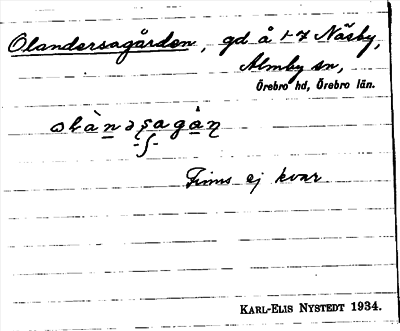 Olandersagården, gd å 1-7 Näsby,
Almby sn,
Örebro hd, Örebro län.
Finns ej kvar
KARL-ELIS NYSTEDT 1934.